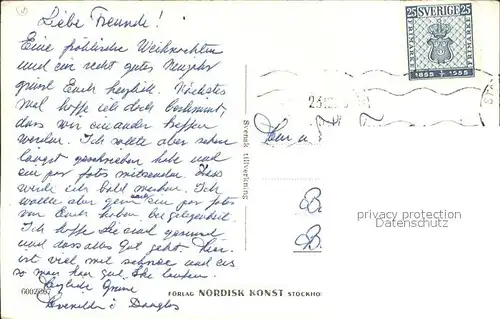 Liebe Freunde!
Eine fröhliche Weihnachten
und ein recht gutes Neujahr
grüsst Euch herzlich. Nächstes
mal hoffe ich doch bestimmt,
dass wir einander treffen
werden. Ich sollte aber schon
längst geschrieben habe und
ein par fotos mitsenden. Dass
werde ich bald machen. Ich
wollte aber gern auch ein par fotos
von Euch haben bei gelegenheit.
Ich hoffe Sie sind gesund
und dass alles gut geht. Hier
ist viel mit schnee und eis
so man kan gut Ski laufen.
Herzliche Grüsse
i Douglas
6002897
FÖRLAG NORDISK KONST STOCKHO
Svensk tillverkning
25 SVERIGE 25
FRIMÄRKET
1855 1955
23
B.
B.
privacy protection
Datenschutz